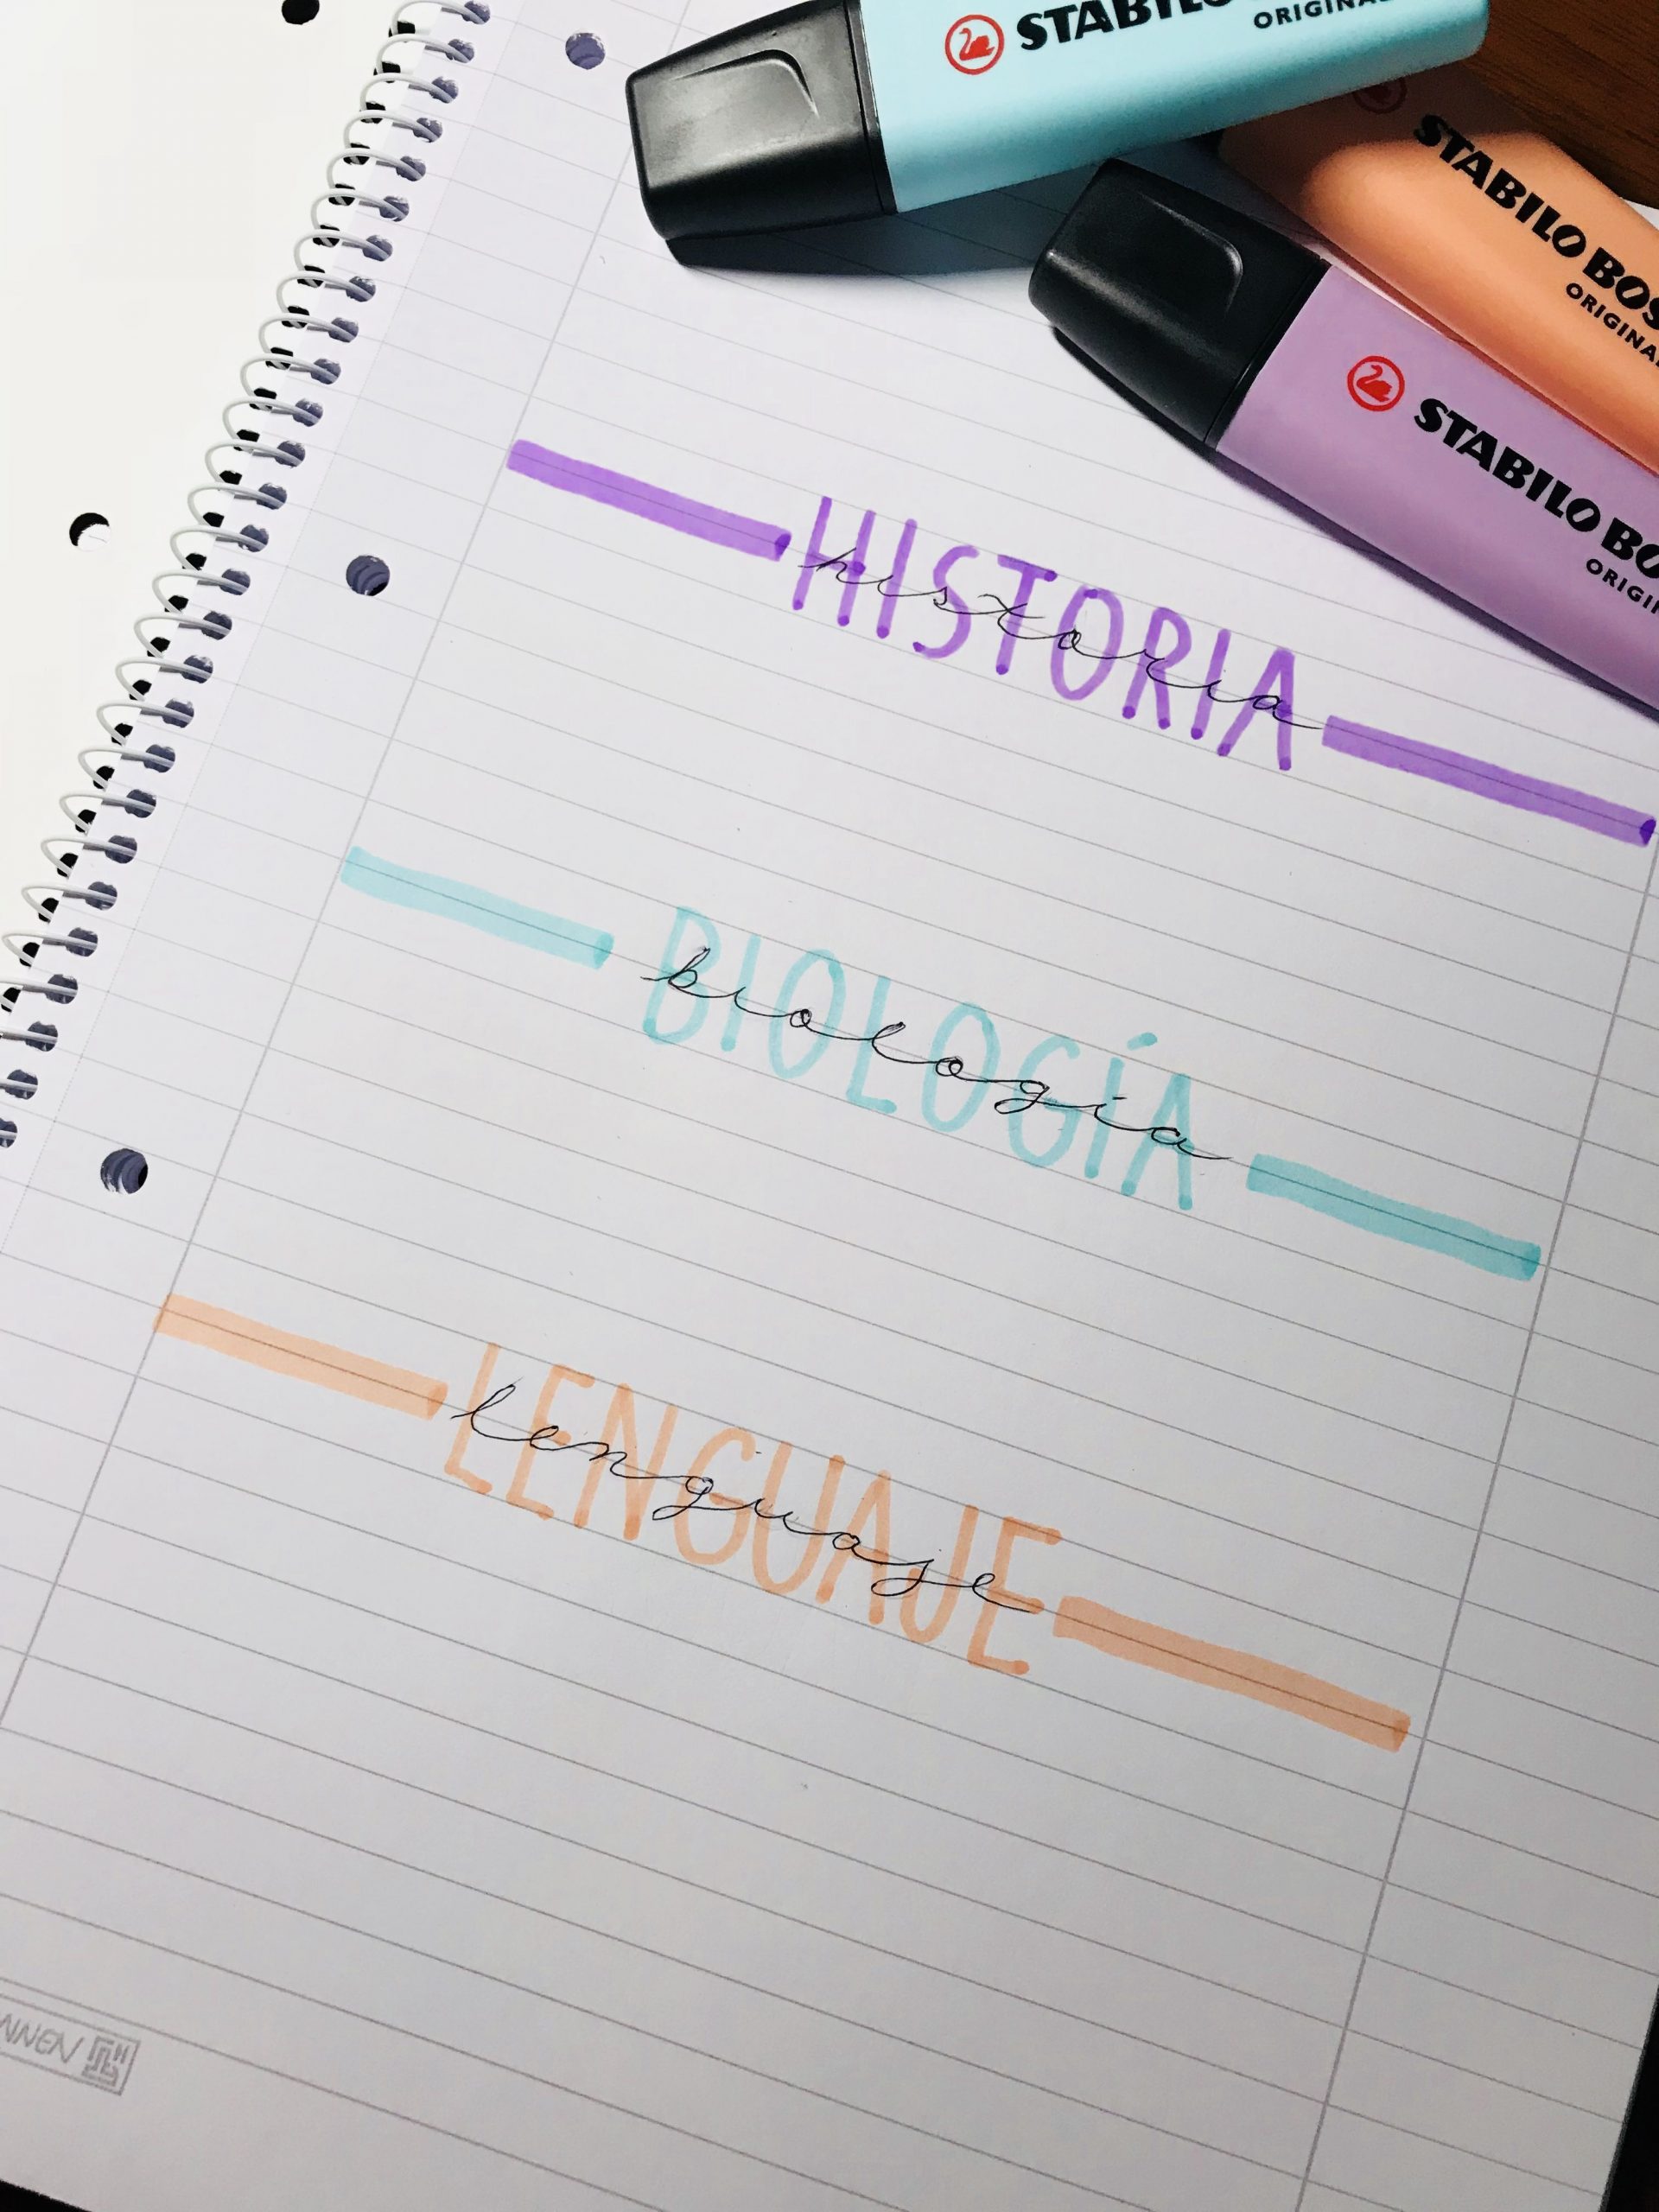 STABILO
ORIGINAL
STABILO BOS
ORIGINAL
STABILO BO
ORIGI
HISTORIA
historia
BIOLOGÍA
biologia
LENGUAJE
lenguaje
NNEN